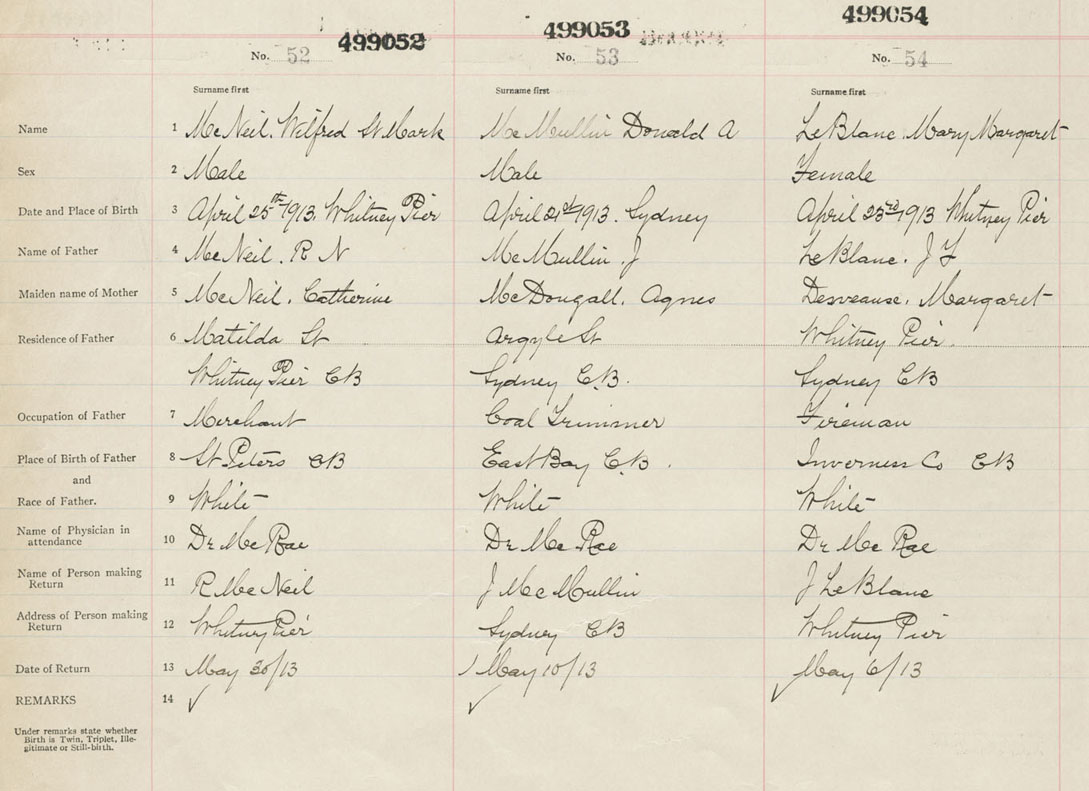 499052 499053 499054
No. 52 No. 53 No. 54
Surname first Surname first Surname first
Name 1 McNeil. Wilfred St. Mark McMullin Donald A LeBlanc Mary Margaret
Sex 2 Male Male Female
Date and Place of Birth 3 April 25th 1913. Whitney Pier April 21st 1913. Sydney April 23rd 1913 Whitney Pier
Name of Father 4 McNeil. R N McMullin. J LeBlanc. J F
Maiden name of Mother 5 McNeil. Catherine McDougall. Agnes Desveause. Margaret
Residence of Father 6 Matilda St Argyle St Whitney Pier.
Whitney Pier CB Sydney C.B. Sydney CB
Occupation of Father 7 Merchant Coal Trimmer Fireman
Place of Birth of Father 8 St. Peters CB East Bay C.B. Inverness Co CB
and
Race of Father. 9 White White White
Name of Physician in
attendance 10 Dr McRae Dr McRae Dr McRae
Name of Person making
Return 11 R McNeil J McMullin J LeBlanc
Address of Person making
Return 12 Whitney Pier Sydney CB Whitney Pier
Date of Return 13 May 30/13 May 10/13 May 6/13
REMARKS 14 ✓ ✓ ✓
Under remarks state whether
Birth is Twin, Triplet, Ille-
gitimate or Still-birth.